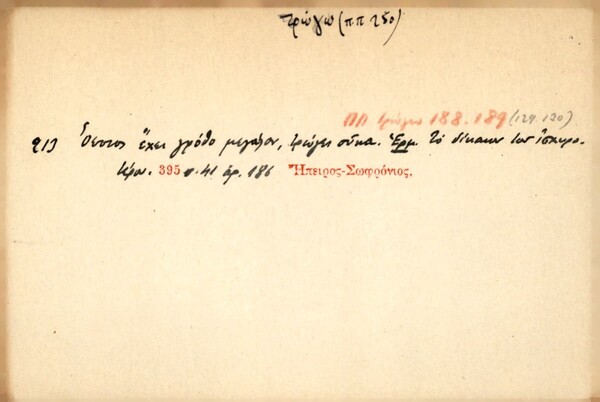 τρώγω (ππ 250)
ΠΠ τρώγω 188. 189 (129. 130)
213 Ὅντις ἔχει γρόθο μεγάλον, τρώγει σῦκα. Ἑρμ. Τὸ δίκαιον τοῦ ἰσχυρο-
τέρου. 395 σ. 41 ἀρ. 186 Ἤπειρος-Σωφρόνιος.